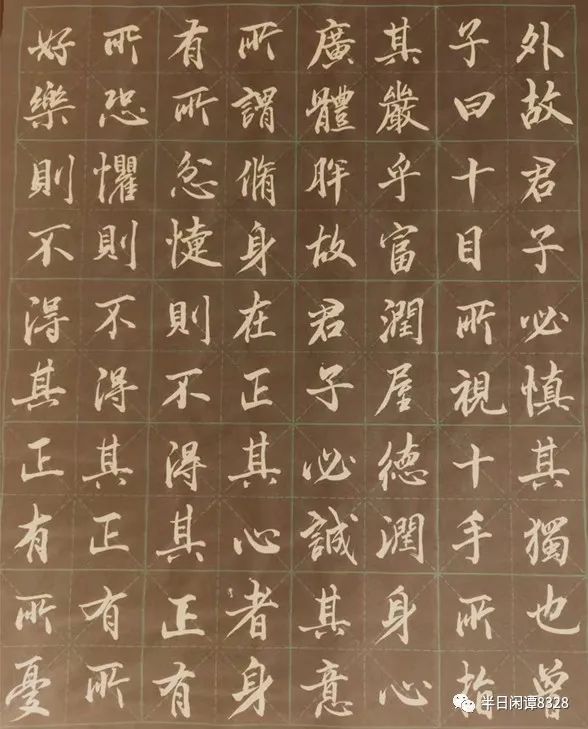 外故君子必慎其獨也曾
子曰十目所視十手所指
其嚴乎富潤屋德潤身心
廣體胖故君子必誠其意
所謂脩身在正其心者身
有所忿懥則不得其正有
所恐懼則不得其正有所
好樂則不得其正有所憂
半日闲谭8328